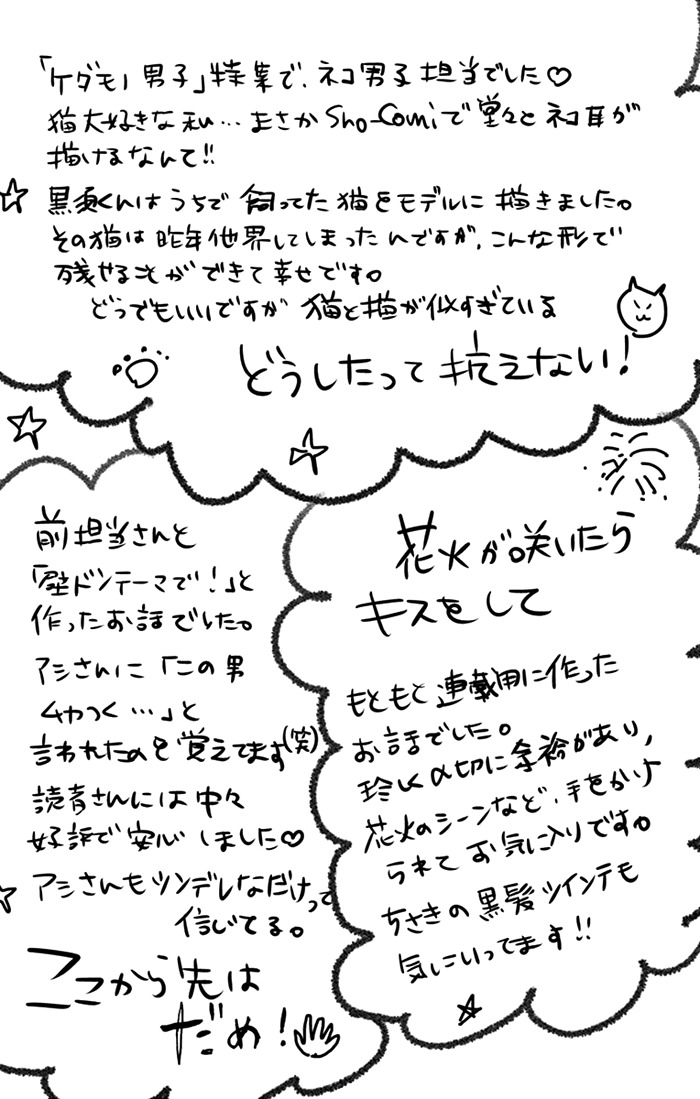 「ケダモノ男子」特集で、ネコ男子担当でした♡
猫大好きな私…まさかSho-Comiで堂々とネコ耳が
描けるなんて!!
黒須くんはうちで飼ってた猫をモデルに描きました。
その猫は昨年他界してしまったんですが、こんな形で
残せることができて幸せです。
どうでもいいですが猫と描が似すぎている
どうしたって抗えない!
前担当さんと
「壁ドンテーマで!」と
作ったお話でした。
アシさんに「この男
ムカつく…」と
言われたのを覚えてます(笑)
読者さんには中々
好評で安心しました♡
アシさんもツンデレなだけって
信じてる。
ここから先は
だめ!
花火が咲いたら
キスをして
もともと連載用に作った
お話でした。
珍しく〆切に余裕があり、
花火のシーンなど、手をかけ
られてお気に入りです。
ちさきの黒髪ツインテも
気にいってます!!